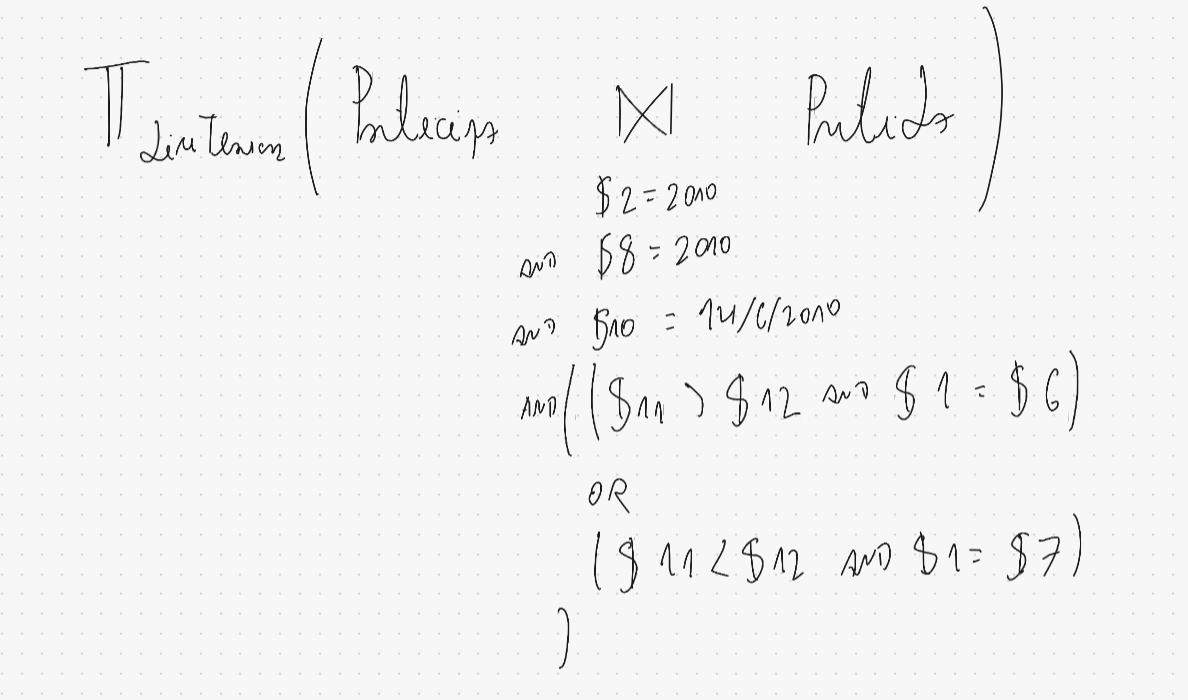 π ( Partecipa ⋈ Partida )
$2 = 2010
AND $8 = 2010
AND $10 = 14/6/2010
AND ( ( $11 > $12 AND $1 = $6 )
OR
( $11 < $12 AND $1 = $7 )
)